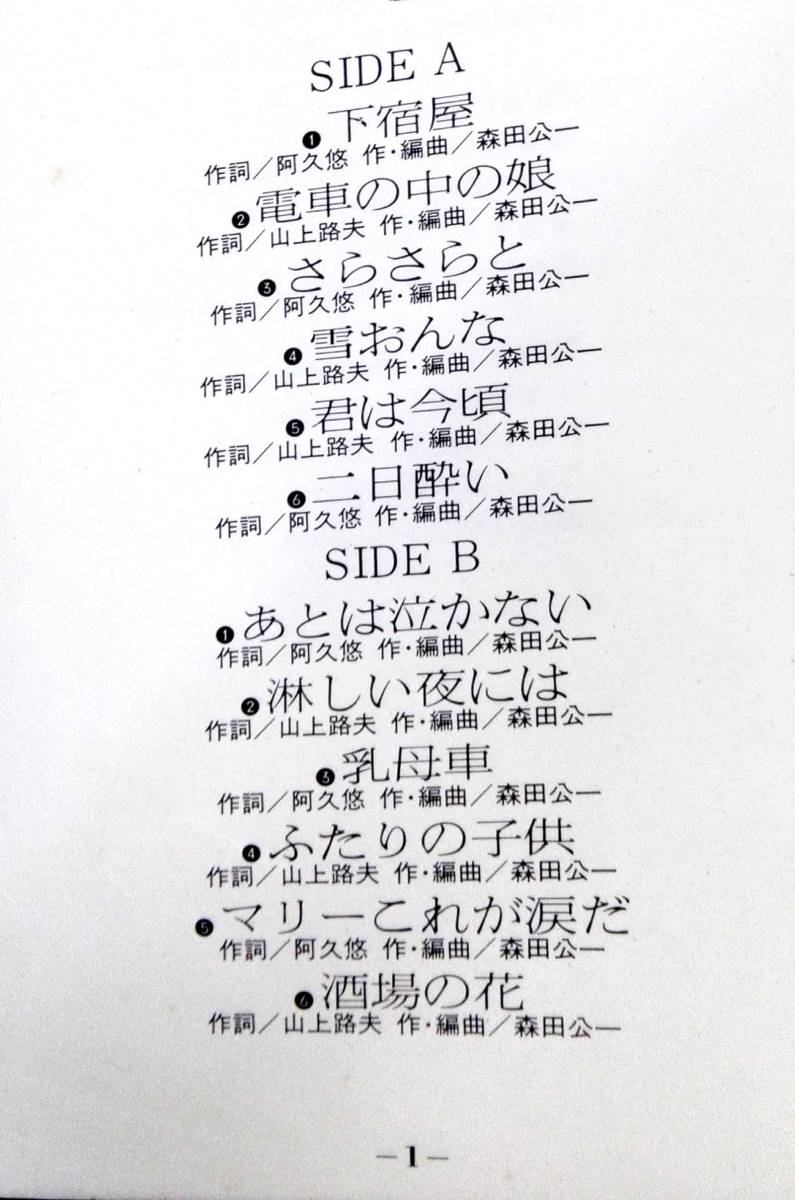 SIDE A
❶下宿屋
作詞/阿久悠 作・編曲/森田公一
❷電車の中の娘
作詞/山上路夫 作・編曲/森田公一
❸さらさらと
作詞/阿久悠 作・編曲/森田公一
❹雪おんな
作詞/山上路夫 作・編曲/森田公一
❺君は今頃
作詞/山上路夫 作・編曲/森田公一
❻二日酔い
作詞/阿久悠 作・編曲/森田公一
SIDE B
❶あとは泣かない
作詞/阿久悠 作・編曲/森田公一
❷淋しい夜には
作詞/山上路夫 作・編曲/森田公一
❸乳母車
作詞/阿久悠 作・編曲/森田公一
❹ふたりの子供
作詞/山上路夫 作・編曲/森田公一
❺マリーこれが涙だ
作詞/阿久悠 作・編曲/森田公一
❻酒場の花
作詞/山上路夫 作・編曲/森田公一
—1—